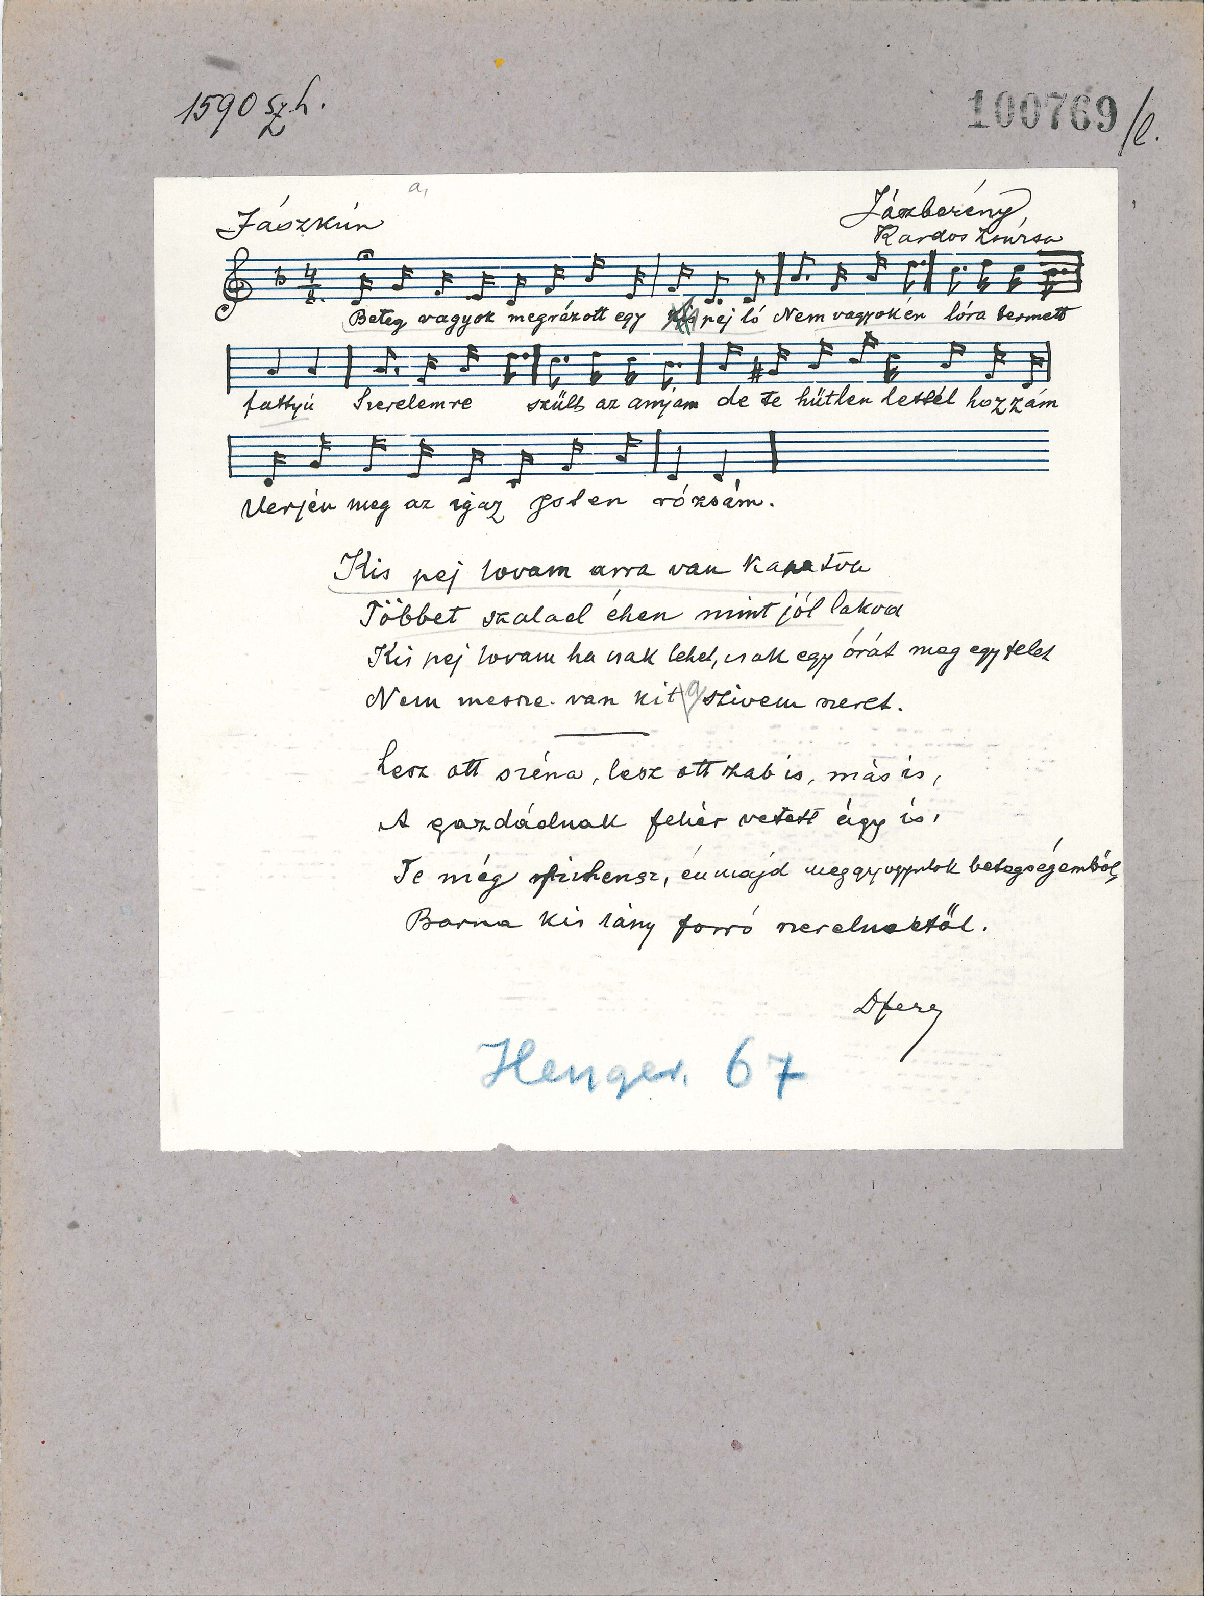 1590 sz h.
100769/l.
a,
Jászkún
Jászberény,
Kardos
Beteg vagyok megrázott egy pej ló Nem vagyok én lóra termett
fattyú Szerelemre szült az anyám de te hűtlen lettél hozzám
Verjén meg az igaz Isten rózsám.
Kis pej lovam arra van kapatva
Többet szalad éhen mint jól lakva
Kis pej lovam ha csak lehet, csak egy órát meg egy felet
Nem messze van kit szivem szeret.
Lesz ott széna, lesz ott zab is, más is,
A gazdádnak fehér vetett ágy is,
Te még pihensz, én majd meggyogyulok betegségemből,
Barna kis lány forró szerelmetől.
Henger. 67